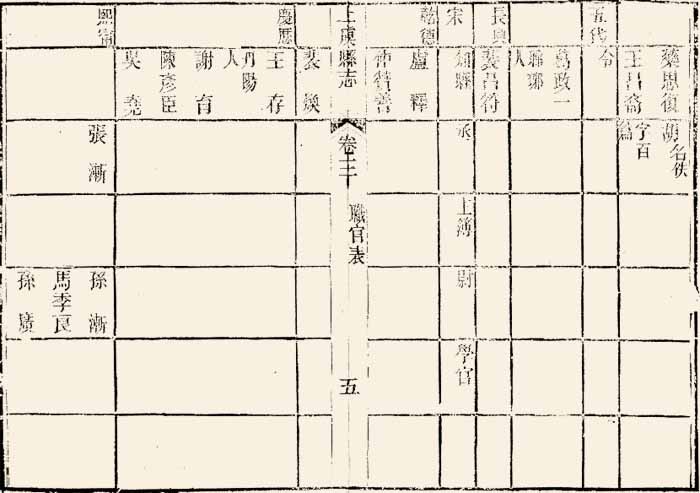 藥思復 胡名佚
王昌裔 字百篇
五代 令
葛政一
人
長興 裴昌符
宋 知縣 丞 主簿 尉 學官
乾德 盧釋
仲贊善
上虞縣志 卷 職官表 五
慶歷 裴煥
王存
丹陽人
謝育
陳彥臣
吳堯
熙寧 張漸 孫漸
馬季良
孫廣